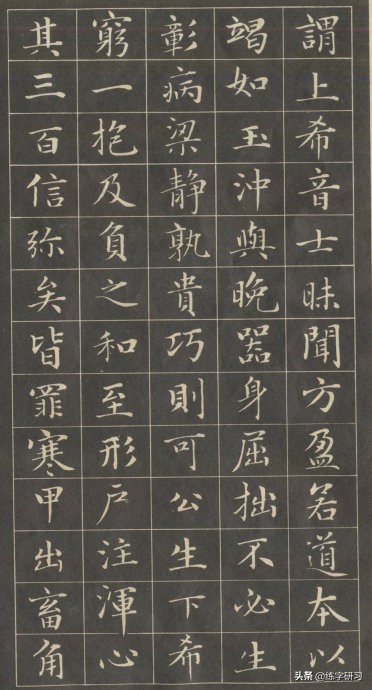 謂上希音士昧聞方盈若道本以
竭如玉沖與晚器身屈拙不必生
彰病梁靜孰貴巧則可公生下希
窮一抱及負之和至形戶注渾心
其三百信弥矣皆罪寒甲出畜角
头条 @练字研习